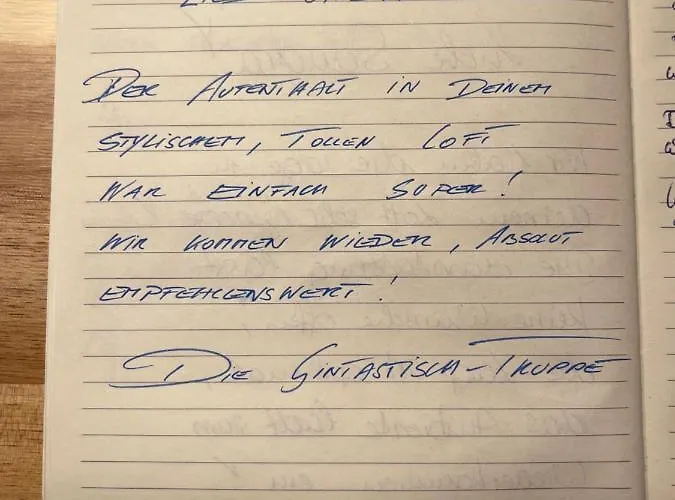 DER AUFENTHALT IN DEINEM
STYLISCHEM, TOLLEN LOFT
WAR EINFACH SUPER!
WIR KOMMEN WIEDER, ABSOLUT
EMPFEHLENSWERT!
DIE GINTASTISCH-TRUPPE